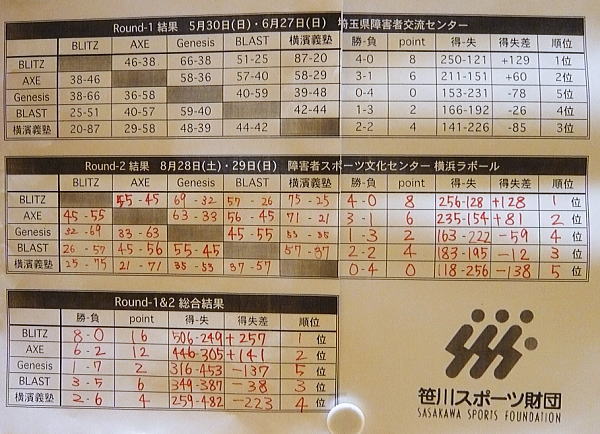 Round-1 結果 5月30日(日)・6月27日(日) 埼玉県障害者交流センター
BLITZ AXE Genesis BLAST 横濱義塾 勝-負 point 得-失 得失差 順位
BLITZ 46-38 66-38 51-25 87-20 4-0 8 250-121 +129 1位
AXE 38-46 58-36 57-40 58-29 3-1 6 211-151 +60 2位
Genesis 38-66 36-58 40-59 39-48 0-4 0 153-231 -78 5位
BLAST 25-51 40-57 59-40 42-44 1-3 2 166-192 -26 4位
横濱義塾 20-87 29-58 48-39 44-42 2-2 4 141-226 -85 3位
Round-2 結果 8月28日(土)・29日(日) 障害者スポーツ文化センター 横浜ラポール
BLITZ AXE Genesis BLAST 横濱義塾 勝-負 point 得-失 得失差 順位
BLITZ 55-45 69-32 57-26 75-25 4-0 8 256-128 +128 1位
AXE 45-55 63-33 56-45 71-21 3-1 6 235-154 +81 2位
Genesis 32-69 33-63 45-55 53-35 1-3 2 163-222 -59 4位
BLAST 26-57 45-56 55-45 57-37 2-2 4 183-195 -12 3位
横濱義塾 25-75 21-71 35-53 37-57 0-4 0 118-256 -138 5位
Round-1&2 総合結果
勝-負 point 得-失 得失差 順位
BLITZ 8-0 16 506-249 +257 1位
AXE 6-2 12 446-305 +141 2位
Genesis 1-7 2 316-453 -137 5位
BLAST 3-5 6 349-387 -38 3位
横濱義塾 2-6 4 259-482 -223 4位
笹川スポーツ財団
SASAKAWA SPORTS FOUNDATION